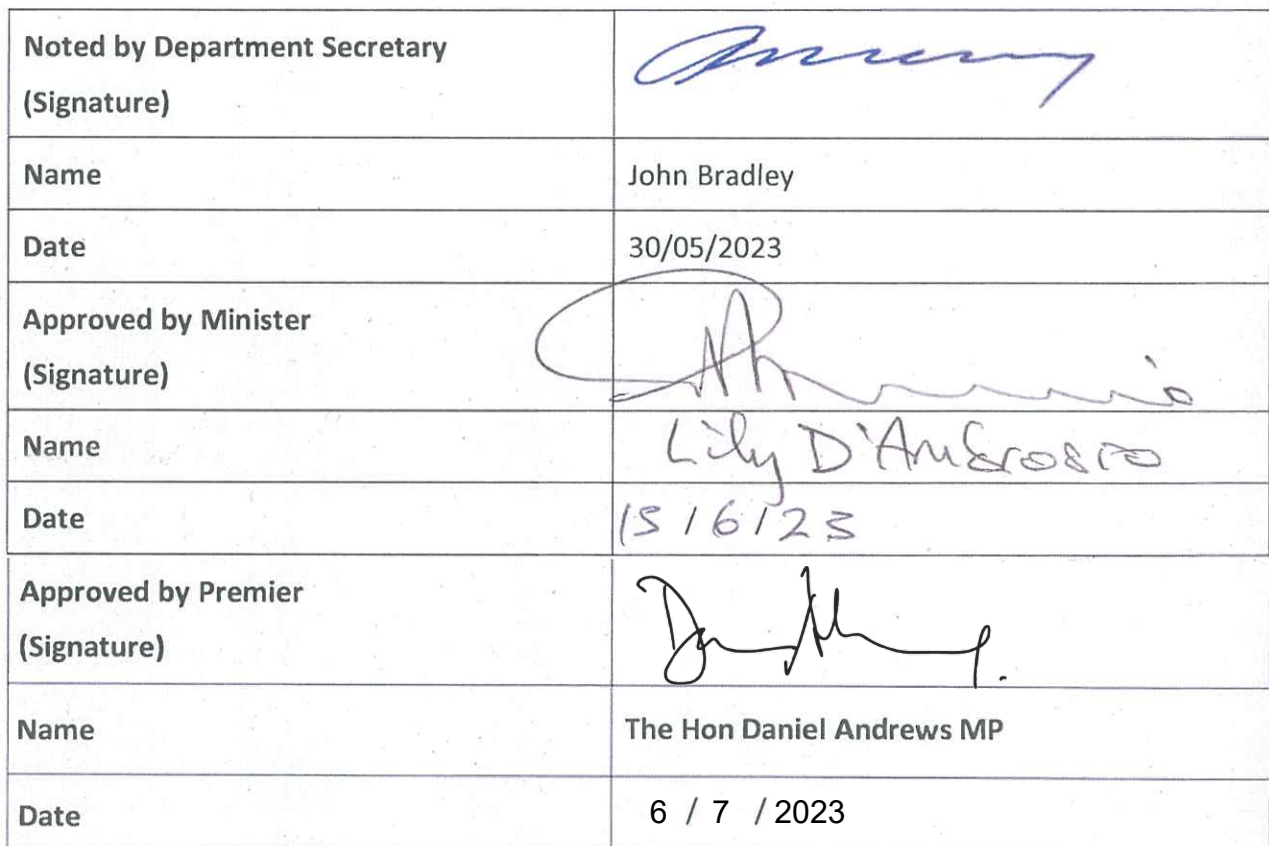 Noted by Department Secretary
(Signature)
Name
John Bradley
Date
30/05/2023
Approved by Minister
(Signature)
Name
Lily D'Ambrosio
Date
15/6/23
Approved by Premier
(Signature)
Name
The Hon Daniel Andrews MP
Date
6 / 7 / 2023